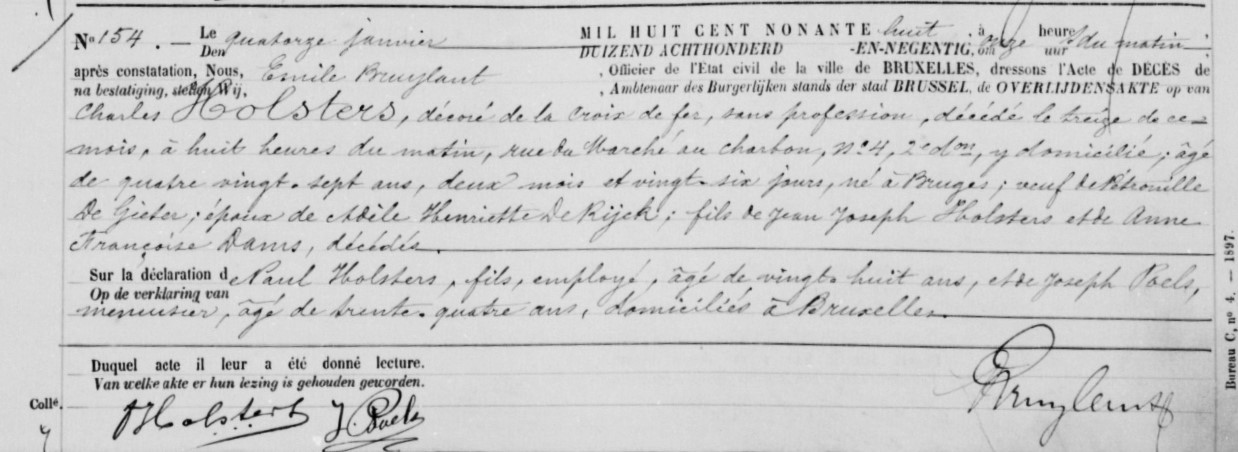 No 154. — Le quatorze janvier MIL HUIT CENT NONANTE huit, à onze heures du matin,
Den DUIZEND ACHTHONDERD -EN-NEGENTIG, om uur
après constatation, Nous, Emile Bruylant, Officier de l'Etat civil de la ville de BRUXELLES, dressons l'Acte de DÉCÈS de
na bestatiging, stellen Wij, , Ambtenaar des Burgerlijken stands der stad BRUSSEL, de OVERLIJDENSAKTE op van
Charles Holsters, décoré de la croix de fer, sans profession, décédé le treize de ce
mois, à huit heures du matin, rue du Marché au charbon, No 4, 2e don, y domicilié; âgé
de quatre vingt-sept ans, deux mois et vingt-six jours, né à Bruges; veuf de Pétronille
De Gieter; époux de Adèle Henriette De Rijck; fils de Jean Joseph Holsters et de Anne
Françoise Dams, décédés.
Sur la déclaration de Paul Holsters, fils, employé, âgé de vingt-huit ans, et de Joseph Poels,
Op de verklaring van
menuisier, âgé de trente-quatre ans, domiciliés à Bruxelles.
Duquel acte il leur a été donné lecture.
Van welke akte er hun lezing is gehouden geworden.
Collé.
P Holsters J. Poels Bruylant
Bureau C, no 4. — 1897.